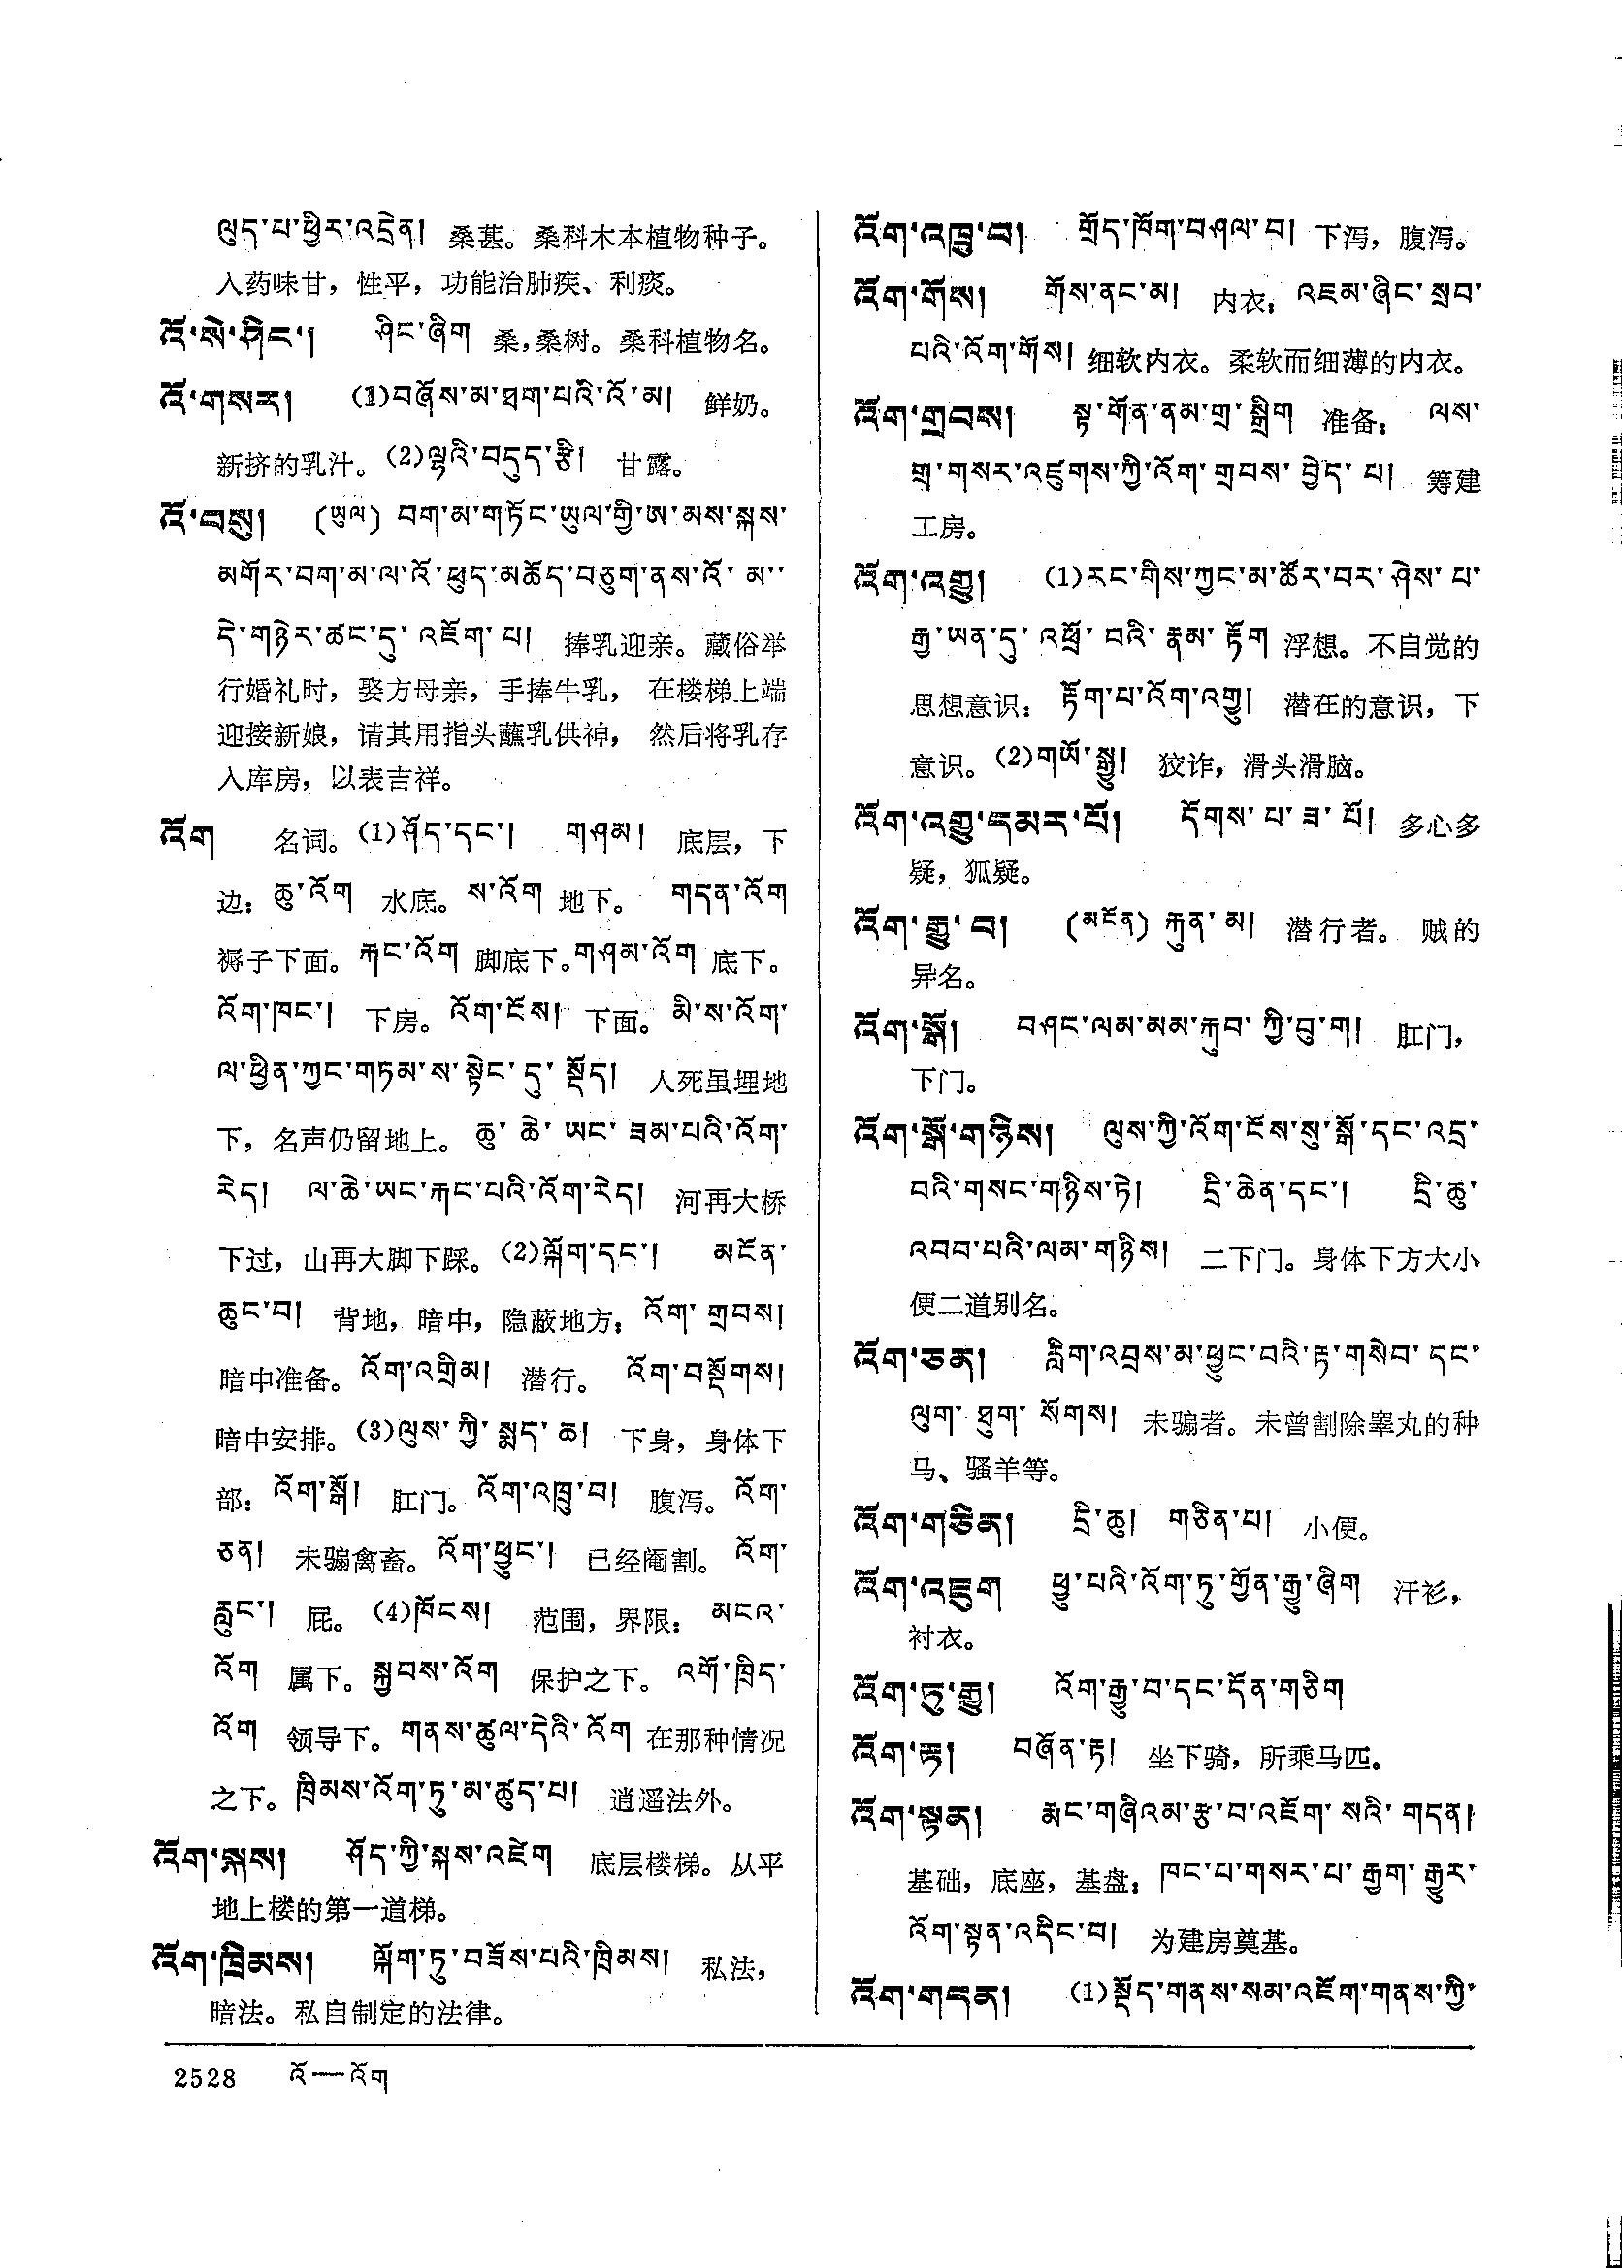 ལུད་པ་ཕྱིར་འདྲེན། 桑葚。桑科木本植物种子。
入药味甘，性平，功能治肺疾、利痰。
འོ་སེ་ཤིང་། ཤིང་ཞིག 桑,桑树。桑科植物名。
འོ་གསར། (1)བཞོས་མ་ཐག་པའི་འོ་མ། 鲜奶。
新挤的乳汁。(2)ལྷའི་བདུད་རྩི། 甘露。
འོ་བསུ། (ཡུལ) བག་མ་གཏོང་ཡུལ་གྱི་ཨ་མས་སྐས་
མགོར་བག་མ་ལ་འོ་ཕུད་མཆོད་བཅུག་ནས་འོ་མ་
དེ་གཉེར་ཚང་དུ་འཇོག་པ། 捧乳迎亲。藏俗举
行婚礼时，娶方母亲，手捧牛乳，在楼梯上端
迎接新娘，请其用指头蘸乳供神，然后将乳存
入库房，以表吉祥。
འོག 名词。(1)ཤོད་དང་། གཤམ། 底层，下
边：ཆུ་འོག 水底。ས་འོག 地下。 གདན་འོག
褥子下面。རྐང་འོག 脚底下。གཤམ་འོག 底下。
འོག་ཁང་། 下房。འོག་ངོས། 下面。མི་ས་འོག་
ལ་ཕྱིན་ཀྱང་གཏམ་ས་སྟེང་དུ་སྡོད། 人死虽埋地
下，名声仍留地上。ཆུ་ཆེ་ཡང་ཟམ་པའི་འོག་
རེད། ལ་ཆེ་ཡང་རྐང་པའི་འོག་རེད། 河再大桥
下过，山再大脚下踩。(2)ལྐོག་དང་། མངོན་
ཆུང་བ། 背地，暗中，隐蔽地方：འོག་གྲབས།
暗中准备。འོག་འགྲིམ། 潜行。 འོག་བསྡོགས།
暗中安排。(3)ལུས་ཀྱི་སྨད་ཆ། 下身，身体下
部：འོག་སྒོ། 肛门。འོག་འཁྲུ་བ། 腹泻。འོག་
ཅན། 未骟禽畜。འོག་ཕྱུང་། 已经阉割。འོག་
རླུང་། 屁。(4)ཁོངས། 范围，界限：མངའ་
འོག 属下。སྐྱབས་འོག 保护之下。འགོ་ཁྲིད་
འོག 领导下。གནས་ཚུལ་དེའི་འོག 在那种情况
之下。ཁྲིམས་འོག་ཏུ་མ་ཚུད་པ། 逍遥法外。
འོག་སྐས། ཤོད་ཀྱི་སྐས་འཛེག 底层楼梯。从平
地上楼的第一道梯。
འོག་ཁྲིམས། ལྐོག་ཏུ་བཟོས་པའི་ཁྲིམས། 私法，
暗法。私自制定的法律。
འོག་འཁྲུ་བ། གྲོད་ཁོག་བཤལ་བ། 下泻，腹泻。
འོག་གོས། གོས་ནང་མ། 内衣：འཇམ་ཞིང་སྲབ་
པའི་འོག་གོས། 细软内衣。柔软而细薄的内衣。
འོག་གྲབས། སྟ་གོན་ནམ་གྲ་སྒྲིག 准备： ལས་
གྲྭ་གསར་འཛུགས་ཀྱི་འོག་གྲབས་བྱེད་པ། 筹建
工房。
འོག་འགྱུ། (1)རང་གིས་ཀྱང་མ་ཚོར་བར་ཤེས་པ་
རྒྱ་ཡན་དུ་འཕྲོ་བའི་རྣམ་རྟོག 浮想。不自觉的
思想意识：རྟོག་པ་འོག་འགྱུ། 潜在的意识，下
意识。(2)གཡོ་སྒྱུ། 狡诈，滑头滑脑。
འོག་འགྱུ་དམར་པོ། དོགས་པ་ཟ་པོ། 多心多
疑，狐疑。
འོག་རྒྱུ་བ། (མངོན) རྐུན་མ། 潜行者。 贼的
异名。
འོག་སྒོ། བཤང་ལམ་མམ་རྐུབ་ཀྱི་བུ་ག། 肛门，
下门。
འོག་སྒོ་གཉིས། ལུས་ཀྱི་འོག་ངོས་སུ་སྒོ་དང་འདྲ་
བའི་གསང་གཉིས་ཏེ། དྲི་ཆེན་དང་། དྲི་ཆུ་
འབབ་པའི་ལམ་གཉིས། 二下门。身体下方大小
便二道别名。
འོག་ཅན། རླིག་འབྲས་མ་ཕྱུང་བའི་རྟ་གསེབ་དང་
ལུག་ཐུག་སོགས། 未骟者。未曾割除睾丸的种
马、骚羊等。
འོག་གཅིན། དྲི་ཆུ། གཅིན་པ། 小便。
འོག་འཇུག ཕྱུ་པའི་འོག་ཏུ་གྱོན་རྒྱུ་ཞིག 汗衫，
衬衣。
འོག་ཏུ་རྒྱུ། འོག་རྒྱུ་བ་དང་དོན་གཅིག
འོག་རྟ། བཞོན་རྟ། 坐下骑，所乘马匹。
འོག་སྟན། རྨང་གཞིའམ་རྩ་བ་འཇོག་སའི་གདན།
基础，底座，基盘：ཁང་པ་གསར་པ་རྒྱག་རྒྱུར་
འོག་སྟན་འདིང་བ། 为建房奠基。
འོག་གདན། (1)སྡོད་གནས་སམ་འཇོག་གནས་ཀྱི་
2528 འོ—འོག